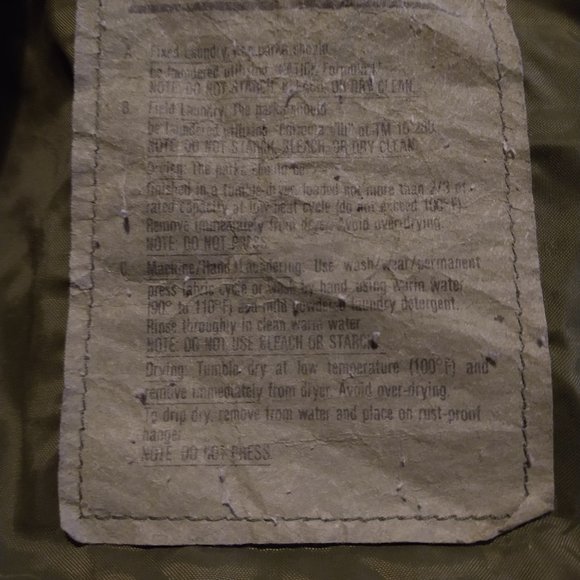 A. Fixed Laundry. The parka should
be laundered utilizing "NATICK Formula I"
NOTE: DO NOT STARCH, BLEACH, OR DRY CLEAN.
B. Field Laundry. The parka should
be laundered utilizing "Formula VIII" of TM 10-280.
NOTE: DO NOT STARCH, BLEACH, OR DRY CLEAN.
Drying: The parka should be
finished in a tumble dryer, loaded not more than 2/3 of
rated capacity at low heat cycle (do not exceed 100°F).
Remove immediately from dryer. Avoid over-drying.
NOTE: DO NOT PRESS.
C. Machine/Hand Laundering: Use wash/wear/permanent
press fabric cycle or wash by hand using warm water
(90° to 110°F) and mild powdered laundry detergent.
Rinse throughly in clean warm water.
NOTE: DO NOT USE BLEACH OR STARCH.
Drying: Tumble dry at low temperature (100°F) and
remove immediately from dryer. Avoid over-drying.
To drip dry, remove from water and place on rust-proof
hanger.
NOTE: DO NOT PRESS.